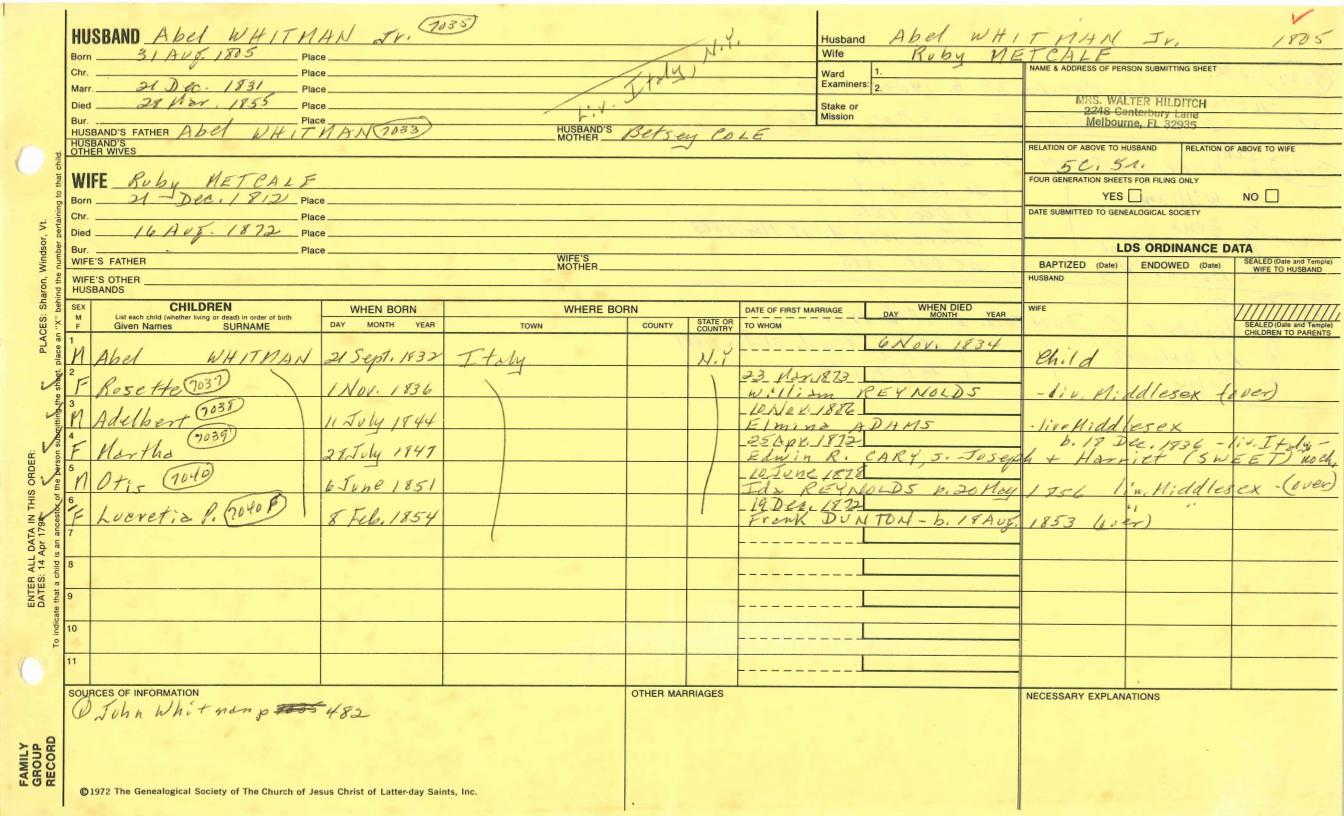 HUSBAND Abel WHITMAN Jr. 7035
Born 31 Aug. 1805 Place
Chr. Place
Marr. 21 Dec. 1831 Place
Died 28 Mar. 1855 Place
Bur. Place
Liv. Italy, N.Y.
HUSBAND'S FATHER Abel WHITMAN 7033 HUSBAND'S MOTHER Betsey COLE
HUSBAND'S OTHER WIVES
WIFE Ruby METCALF
Born 21 Dec. 1812 Place
Chr. Place
Died 16 Aug. 1872 Place
Bur. Place
WIFE'S FATHER WIFE'S MOTHER
WIFE'S OTHER HUSBANDS
Husband Abel WHITMAN Jr. 1805
Wife Ruby METCALF
Ward Examiners: 1. 2.
Stake or Mission
NAME & ADDRESS OF PERSON SUBMITTING SHEET
MRS. WALTER HILDITCH
2248 Canterbury Lane
Melbourne, FL 32935
RELATION OF ABOVE TO HUSBAND RELATION OF ABOVE TO WIFE
5C. 5r.
FOUR GENERATION SHEETS FOR FILING ONLY
YES NO
DATE SUBMITTED TO GENEALOGICAL SOCIETY
LDS ORDINANCE DATA
BAPTIZED (Date) ENDOWED (Date) SEALED (Date and Temple) WIFE TO HUSBAND
HUSBAND
WIFE
SEALED (Date and Temple) CHILDREN TO PARENTS
SEX M F CHILDREN WHEN BORN WHERE BORN DATE OF FIRST MARRIAGE WHEN DIED
List each child (whether living or dead) in order of birth
Given Names SURNAME DAY MONTH YEAR TOWN COUNTY STATE OR COUNTRY TO WHOM DAY MONTH YEAR
1 M Abel WHITMAN 21 Sept. 1832 Italy N.Y 6 Nov. 1834 Child
2 F Rosette 7037 1 Nov. 1836 23 Mar. 1873
William REYNOLDS -liv. Middlesex (over)
3 M Adelbert 7038 11 July 1844 10 Nov. 1886
Elmina ADAMS -liv. Middlesex
4 F Martha 7039 28 July 1847 25 Apr. 1872 b. 18 Dec. 1836 -liv. Italy-
Edwin R. CARY, s. Joseph + Harriet (SWEET) no ch.
5 M Otis 7040 6 June 1851 10 June 1878
Ida REYNOLDS b. 20 May 1856 liv. Middlesex -(over)
6 F Lucretia P. 7040 P 8 Feb. 1854 19 Dec. 1872 " "
Frank DUNTON - b. 18 Aug. 1853 (over)
7
8
9
10
11
SOURCES OF INFORMATION
① John Whitman p 482
OTHER MARRIAGES
NECESSARY EXPLANATIONS
©1972 The Genealogical Society of The Church of Jesus Christ of Latter-day Saints, Inc.
FAMILY GROUP RECORD
ENTER ALL DATA IN THIS ORDER:
DATES: 14 Apr 1794 PLACES: Sharon, Windsor, Vt.
To indicate that a child is an ancestor of the person submitting the sheet, place an "X" behind the number pertaining to that child.